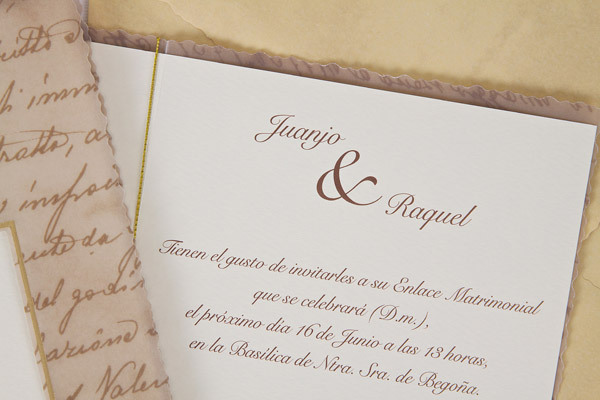 Juanjo
&
Raquel
Tienen el gusto de invitarles a su Enlace Matrimonial
que se celebrará (D.m.),
el próximo día 16 de Junio a las 13 horas,
en la Basílica de Ntra. Sra. de Begoña.